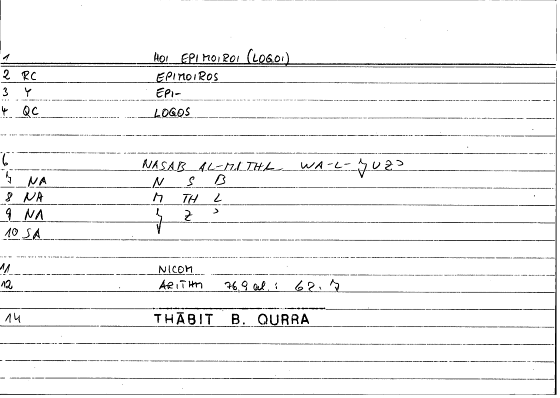 1 HOI EPIMOIROI (LOGOI)
2 RC EPIMOIROS
3 Y EPI-
4 QC LOGOS
6 NASAB AL-MATHL WA-L-
NA N S B
8 NA M TH L
9 NA Z ɔ
10 SA
11 NICOM
12 ARITHM 76,9 al.:
14 THĀBIT B. QURRA